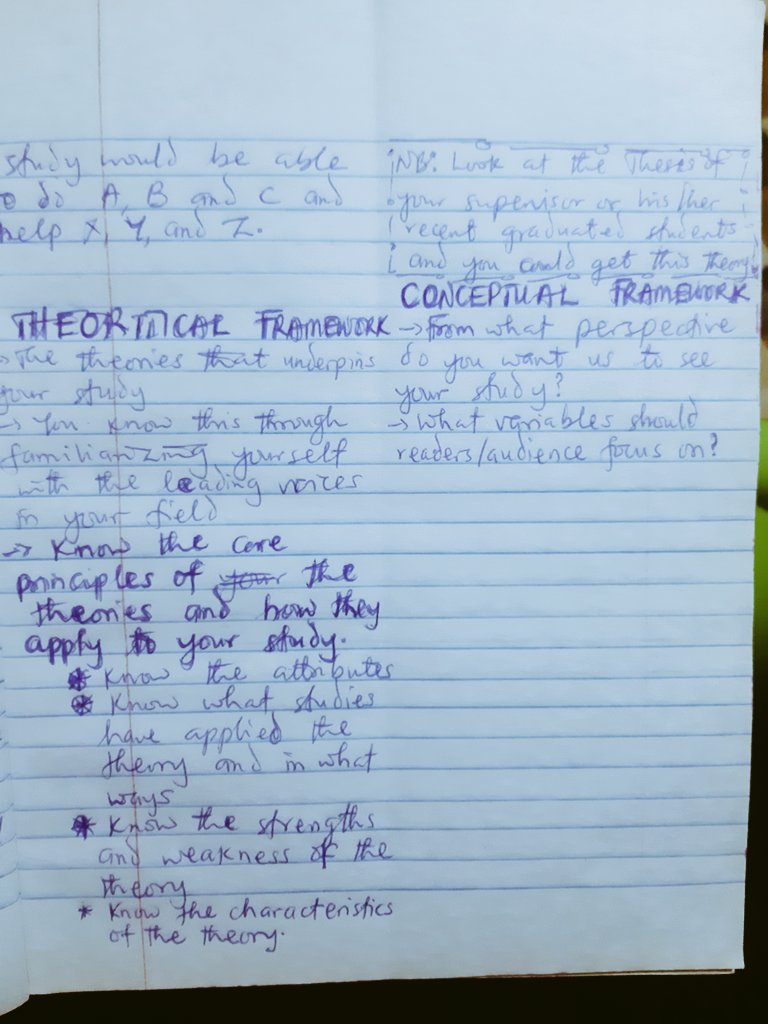 study would be able
to do A, B and C and
help X, Y, and Z.
THEORITICAL FRAMEWORK
→ The theories that underpins
your study
→ You know this through
familianzing yourself
with the leading voices
in your field
→ Know the core
principles of your the
theories and how they
apply to your study.
* Know the attributes
* Know what studies
have applied the
theory and in what
ways
* Know the strengths
and weakness of the
theory
* Know the characteristics
of the theory.
NB: Look at the Thesis of
your supervisor or his/her
recent graduated students
and you could get this theory
CONCEPTUAL FRAMEWORK
→ From what perspective
do you want us to see
your study?
→ What variables should
readers/audience focus on?